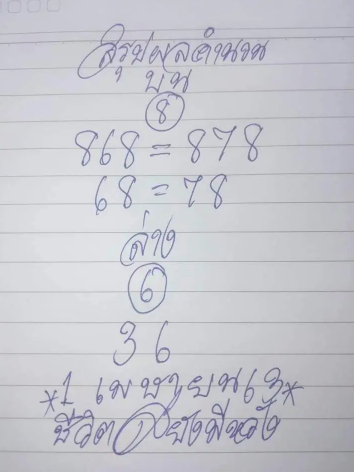 สรุปผลคำนวน
บน
8
868 = 878
68 = 78
ล่าง
6
36
*1 เมษายน 63*
ชีวิตยังมีหวัง